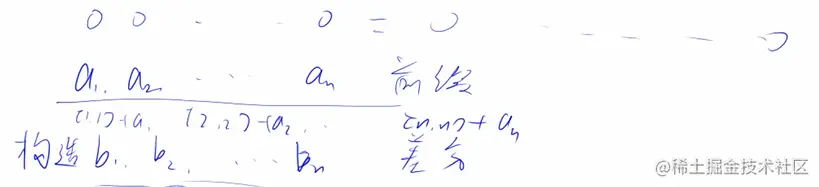 0 0 ... 0 = 0 ... 0
a₁, a₂ ... aₙ 前缀
[1,1]+a₁ [2,2]+a₂ ... [n,n]+aₙ
构造 b₁, b₂ ... bₙ 差分
@稀土掘金技术社区